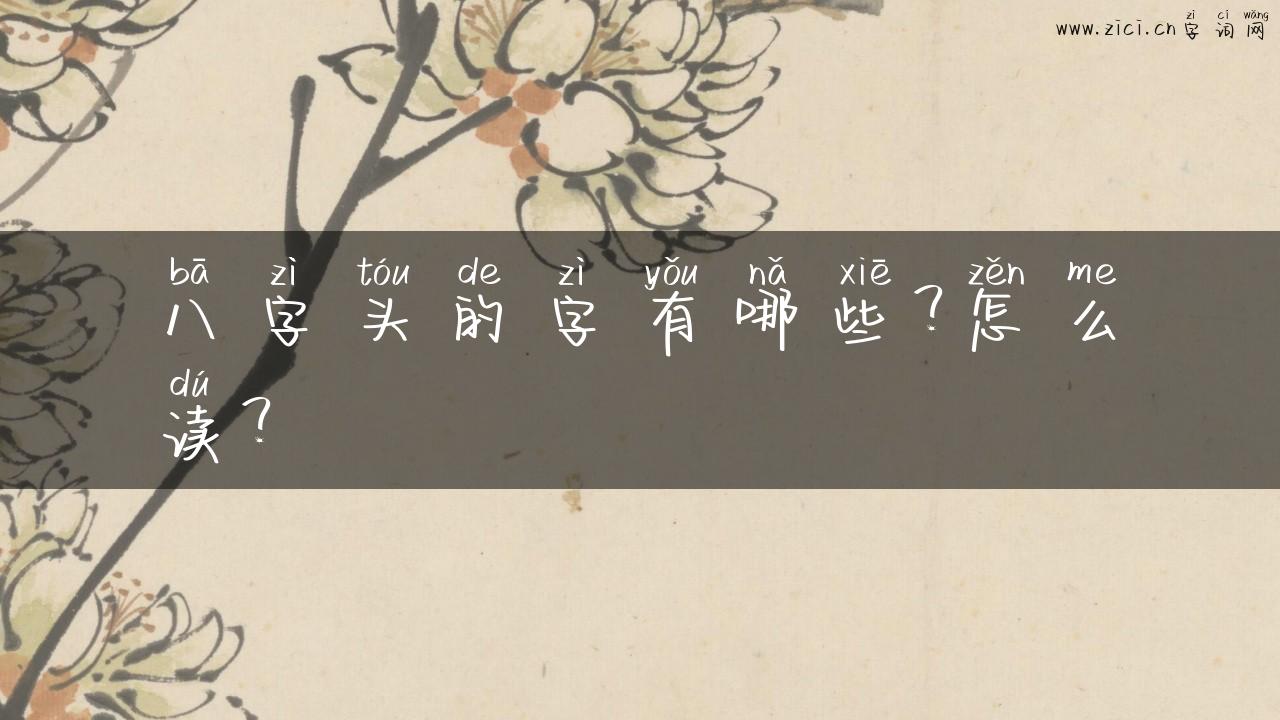 zì cí wǎng
www.zici.cn 字词网
bā zì tóu de zì yǒu nǎ xiē zěn me
八字头的字有哪些?怎么
dú
读?